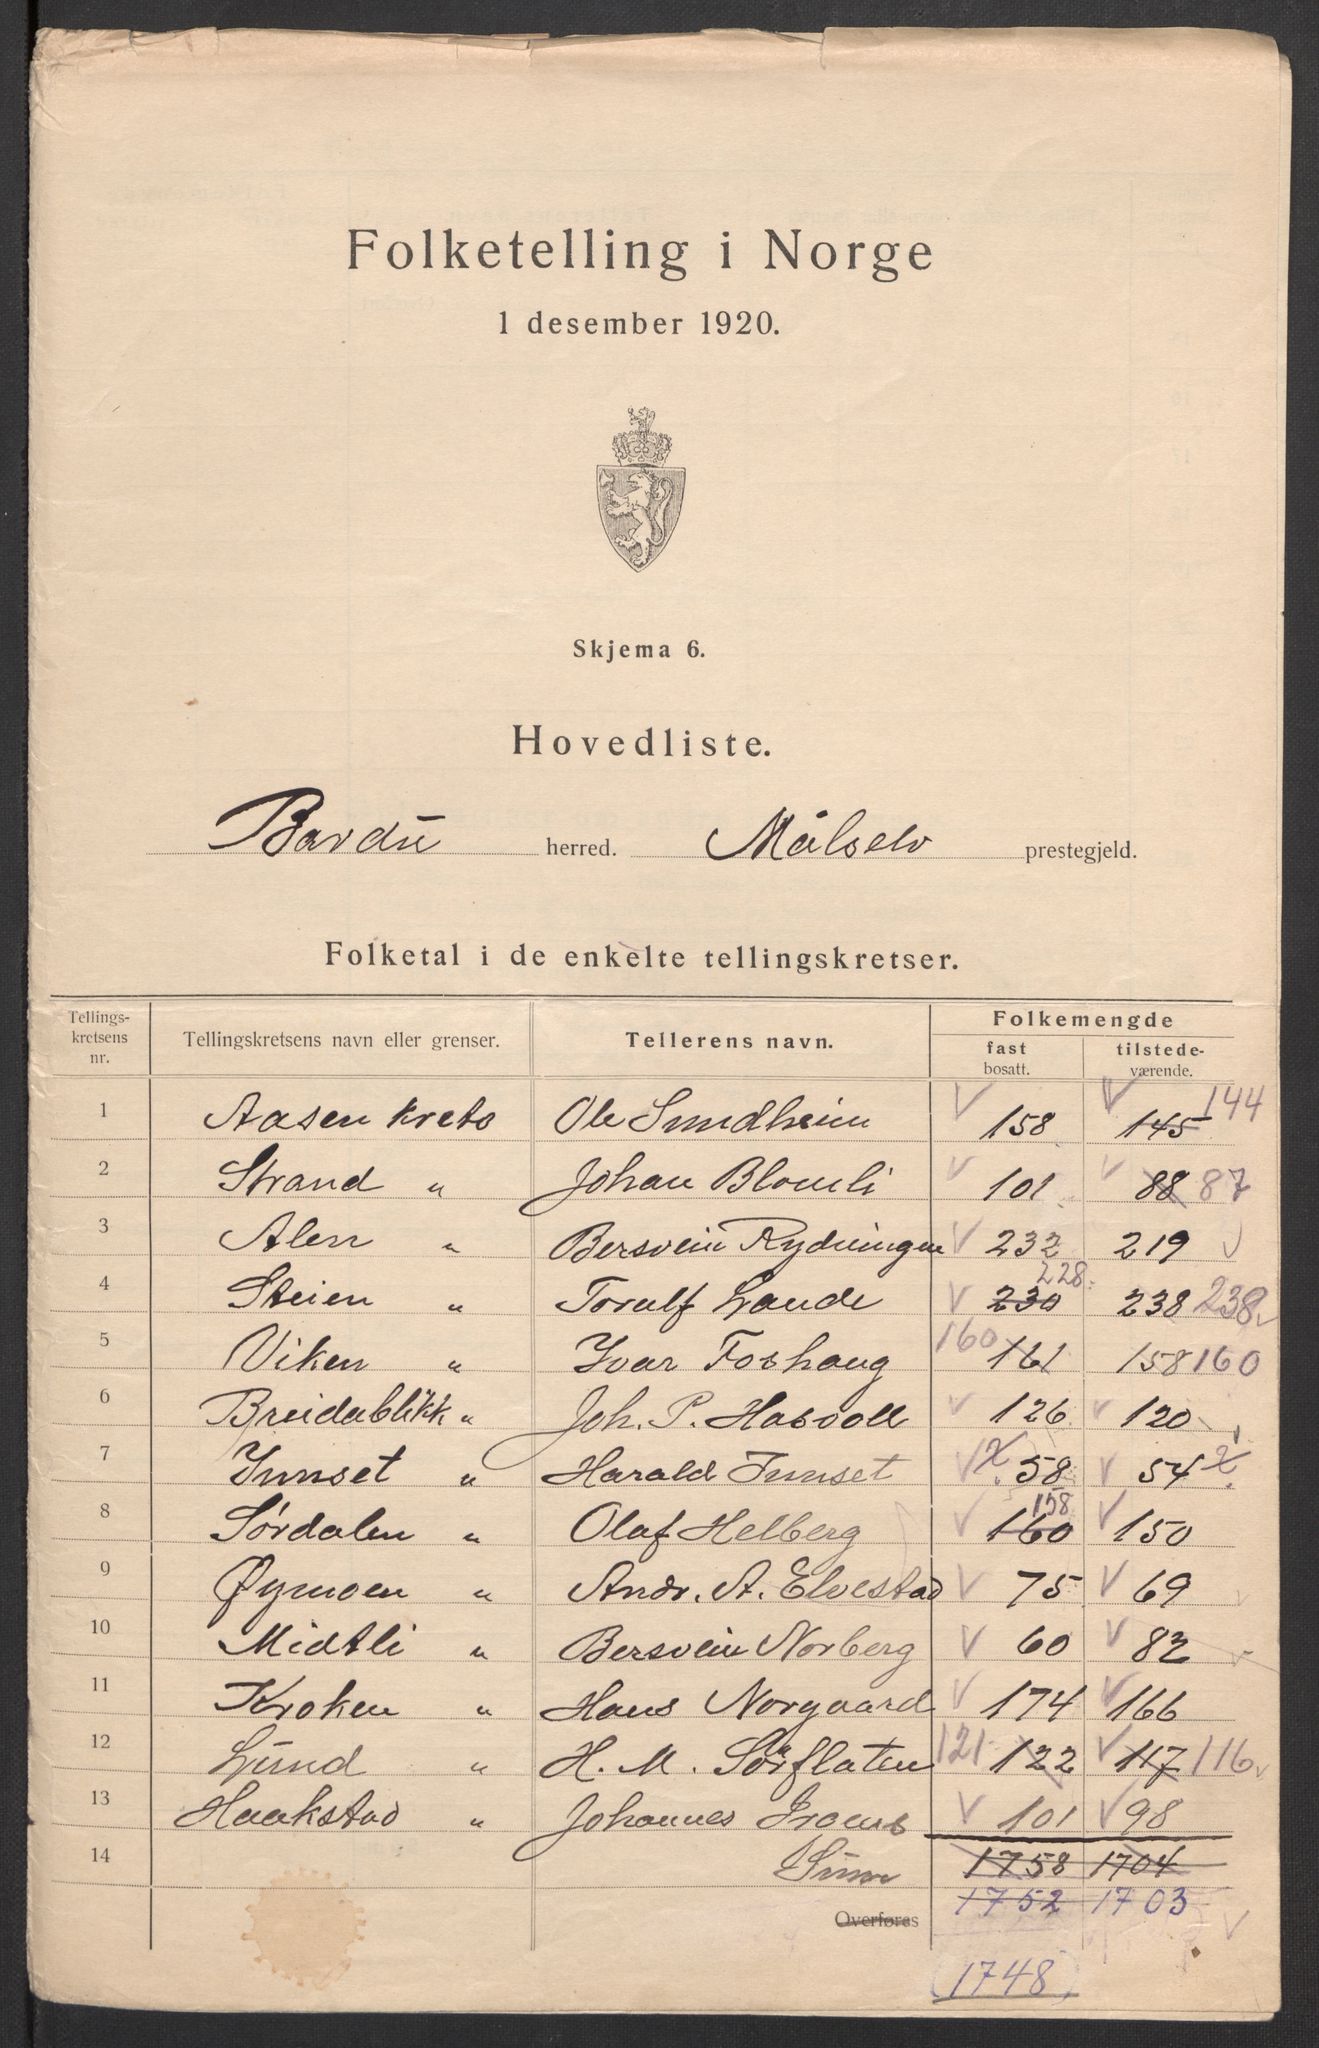 Folketelling i Norge
1 desember 1920.
Skjema 6.
Hovedliste.
Bardu herred. Målselv prestegjeld.
Folketal i de enkelte tellingskretser.
Tellings-kretsens nr. Tellingskretsens navn eller grenser. Tellerens navn. Folkemengde
fast bosatt. tilstede-værende.
1 Aasen krets Ole Sundheim 158 145 144
2 Strand " Johan Blomli 101 88 87
3 Alen " Bersvein Rydningen 232 219
4 Steien " Toralf Lande 230 228 238 238
5 Viken " Ivar Foshaug 160 161 158 160
6 Breidablikk " Joh. P. Hasvoll 126 120
7 Innset " Harald Innset 58 54
8 Sørdalen " Olaf Helberg 160 158 150
9 Øymoen " Andr. A. Elvestad 75 69
10 Midtli " Bersvein Norberg 60 82
11 Kroken " Hans Norgaard 174 166
12 Lund " H. M. Sørflaten 121 122 117 116
13 Haakstad " Johannes 101 98
14 Sum 1758 1704
Overføres 1752 1703
(1748)